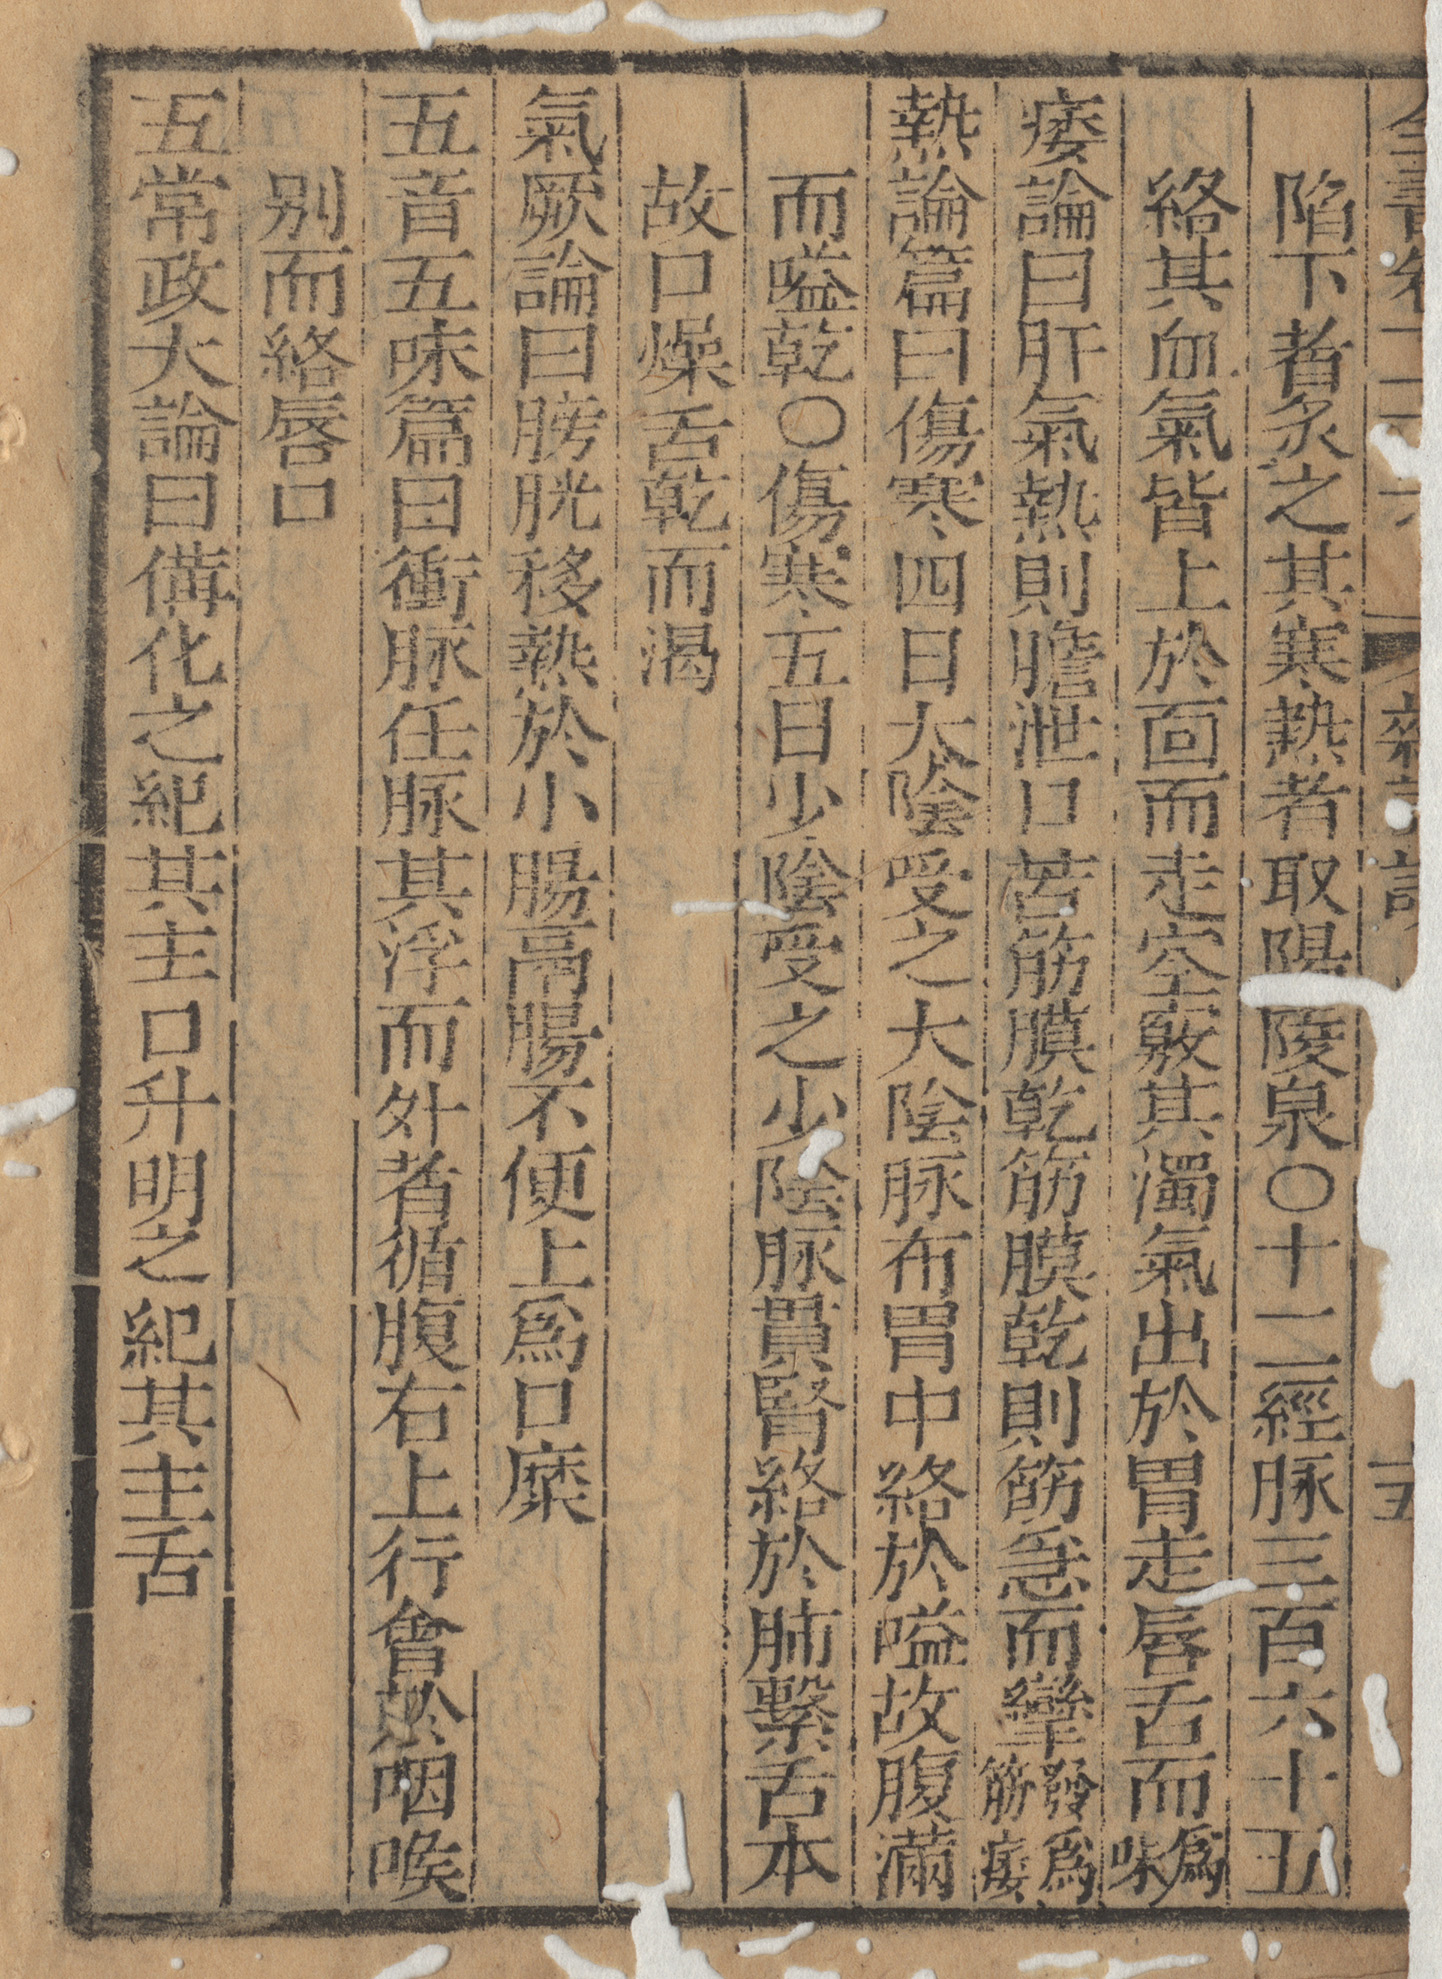 陷下者炙之其寒熱者取陽陵泉○十二經脉三百六十五
絡其血氣皆上於面而走空竅其濁氣出於胃走唇舌而爲味
痿論曰肝氣熱則膽泄口苦筋膜乾筋膜乾則筋急而攣發爲筋痿
熱論篇曰傷寒四日大陰受之大陰脉布胃中絡於嗌故腹滿
而嗌乾○傷寒五日少陰受之少陰脉貫腎絡於肺繫舌本
故口燥舌乾而渴
氣厥論曰膀胱移熱於小腸鬲腸不便上爲口糜
五音五味篇曰衝脉任脉其浮而外者循腹右上行會於咽喉
别而絡唇口
五常政大論曰備化之紀其主口升明之紀其主舌